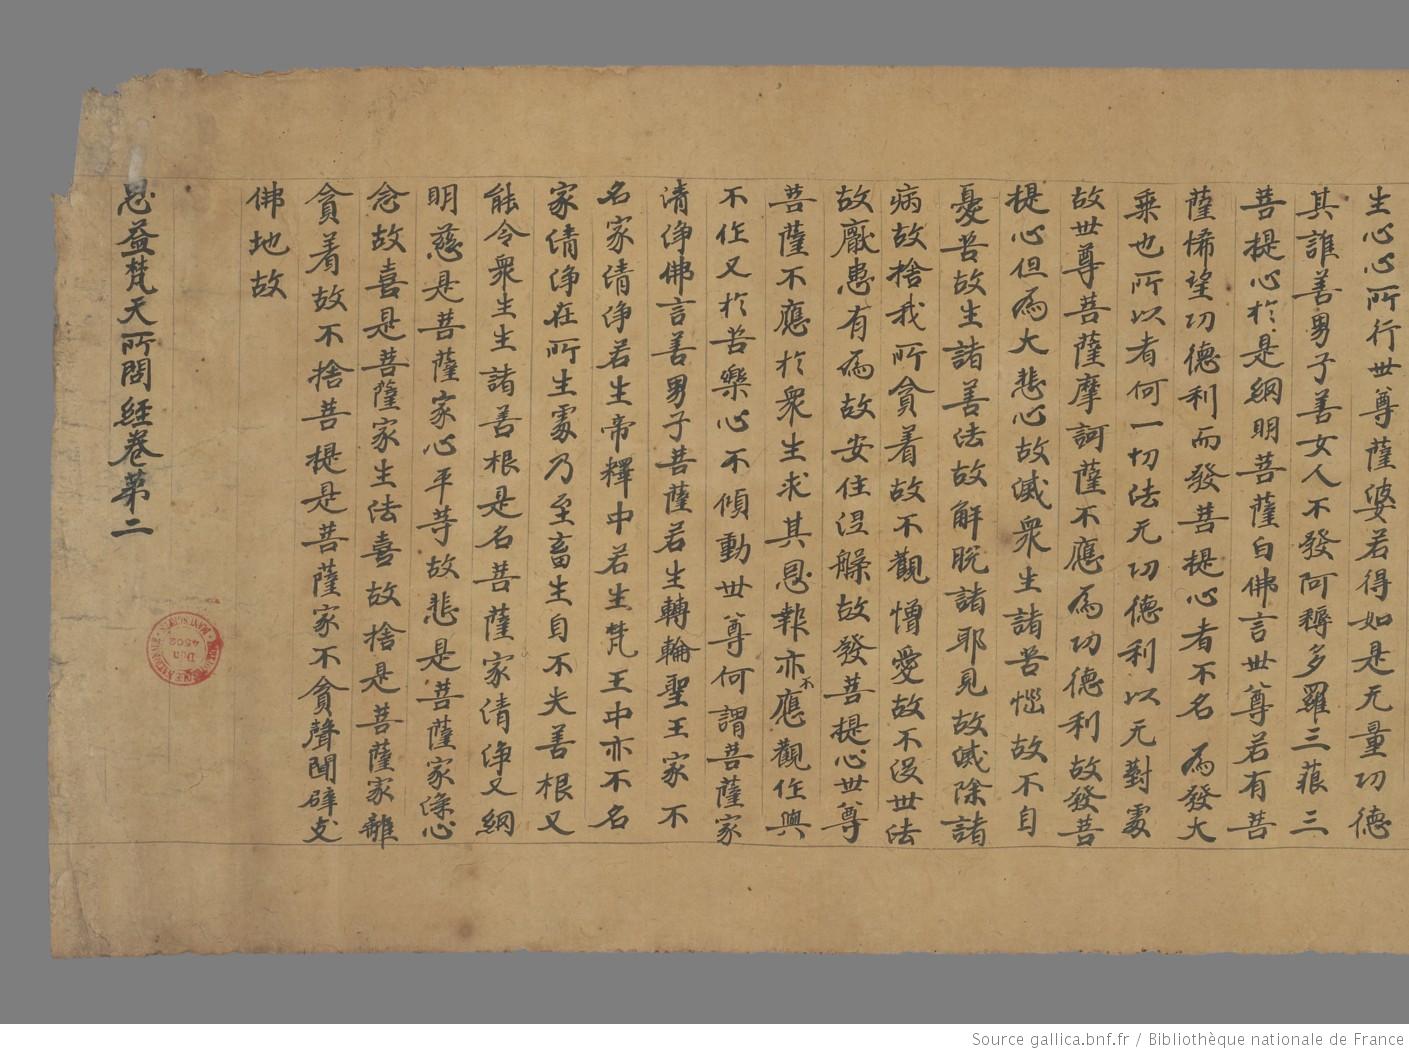 生心心所行世尊薩婆若得如是无量功德
其誰善男子善女人不發阿耨多羅三藐三
菩提心於是網明菩薩白佛言世尊若有菩
薩悕望功德利而發菩提心者不名為發大
乗也所以者何一切法无功德利以无對處
故世尊菩薩摩訶薩不應為功德利故發菩
提心但為大悲心故滅衆生諸苦惱故不自
憂苦故生諸善法故解脫諸耶見故滅除諸
病故捨我所貪著故不觀憎愛故不没世法
故厭患有為故安住涅槃故發菩提心世尊
菩薩不應於衆生求其恩報亦不應觀作與
不作又於苦樂心不傾動世尊何謂菩薩家
清淨佛言善男子菩薩若生轉輪聖王家不
名家清淨若生帝釋中若生梵王中亦不名
家清淨在所生處乃至畜生自不失善根又
能令衆生生諸善根是名菩薩家清淨又網
明慈是菩薩家心平等故悲是菩薩家深心
念故喜是菩薩家生法喜故捨是菩薩家離
貪著故不捨菩提是菩薩家不貪聲聞辟支
佛地故
思益梵天所問經卷第二
Source gallica.bnf.fr / Bibliothèque nationale de France